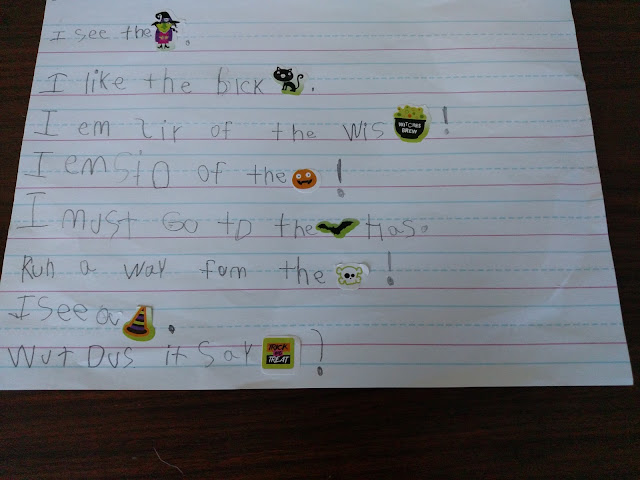 I see the .
I like the blck .
I em lir of the wis WITCHES BREW !
I em Sio of the !
I must Go to the Has.
Run a way fom the !
I See a .
Wut Dus it Say TRICK OR TREAT ?